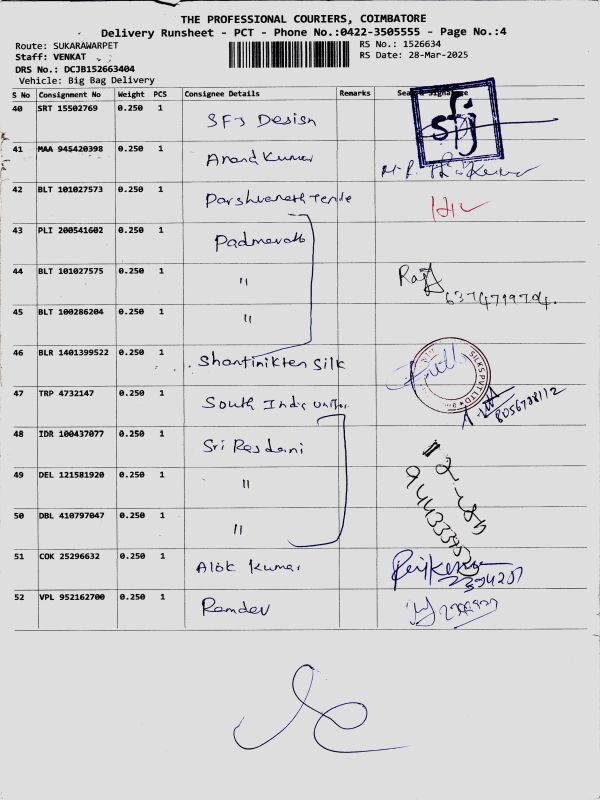 THE PROFESSIONAL COURIERS, COIMBATORE
Delivery Runsheet - PCT - Phone No.:0422-3505555 - Page No.:4
Route: SUKARAWARPET RS No.: 1526634
Staff: VENKAT RS Date: 28-Mar-2025
DRS No.: DCJB152663404
Vehicle: Big Bag Delivery
S No Consignment No Weight PCS Consignee Details Remarks Seal & Signature
40 SRT 15502769 0.250 1 SFJ Design sfj
41 MAA 945420398 0.250 1 Anand Kumar
42 BLT 101027573 0.250 1 Parshvanath
43 PLI 200541602 0.250 1 Padmavath
44 BLT 101027575 0.250 1 " Raj
6374799704.
45 BLT 100286204 0.250 1 "
46 BLR 1401399522 0.250 1 Shantinikten Silk SILKS PVT LTD
47 TRP 4732147 0.250 1 South India
48 IDR 100437077 0.250 1 Sri
49 DEL 121581920 0.250 1 "
50 DBL 410797047 0.250 1 "
51 COK 25296632 0.250 1 Alok Kumar
52 VPL 952162700 0.250 1 Ramdev